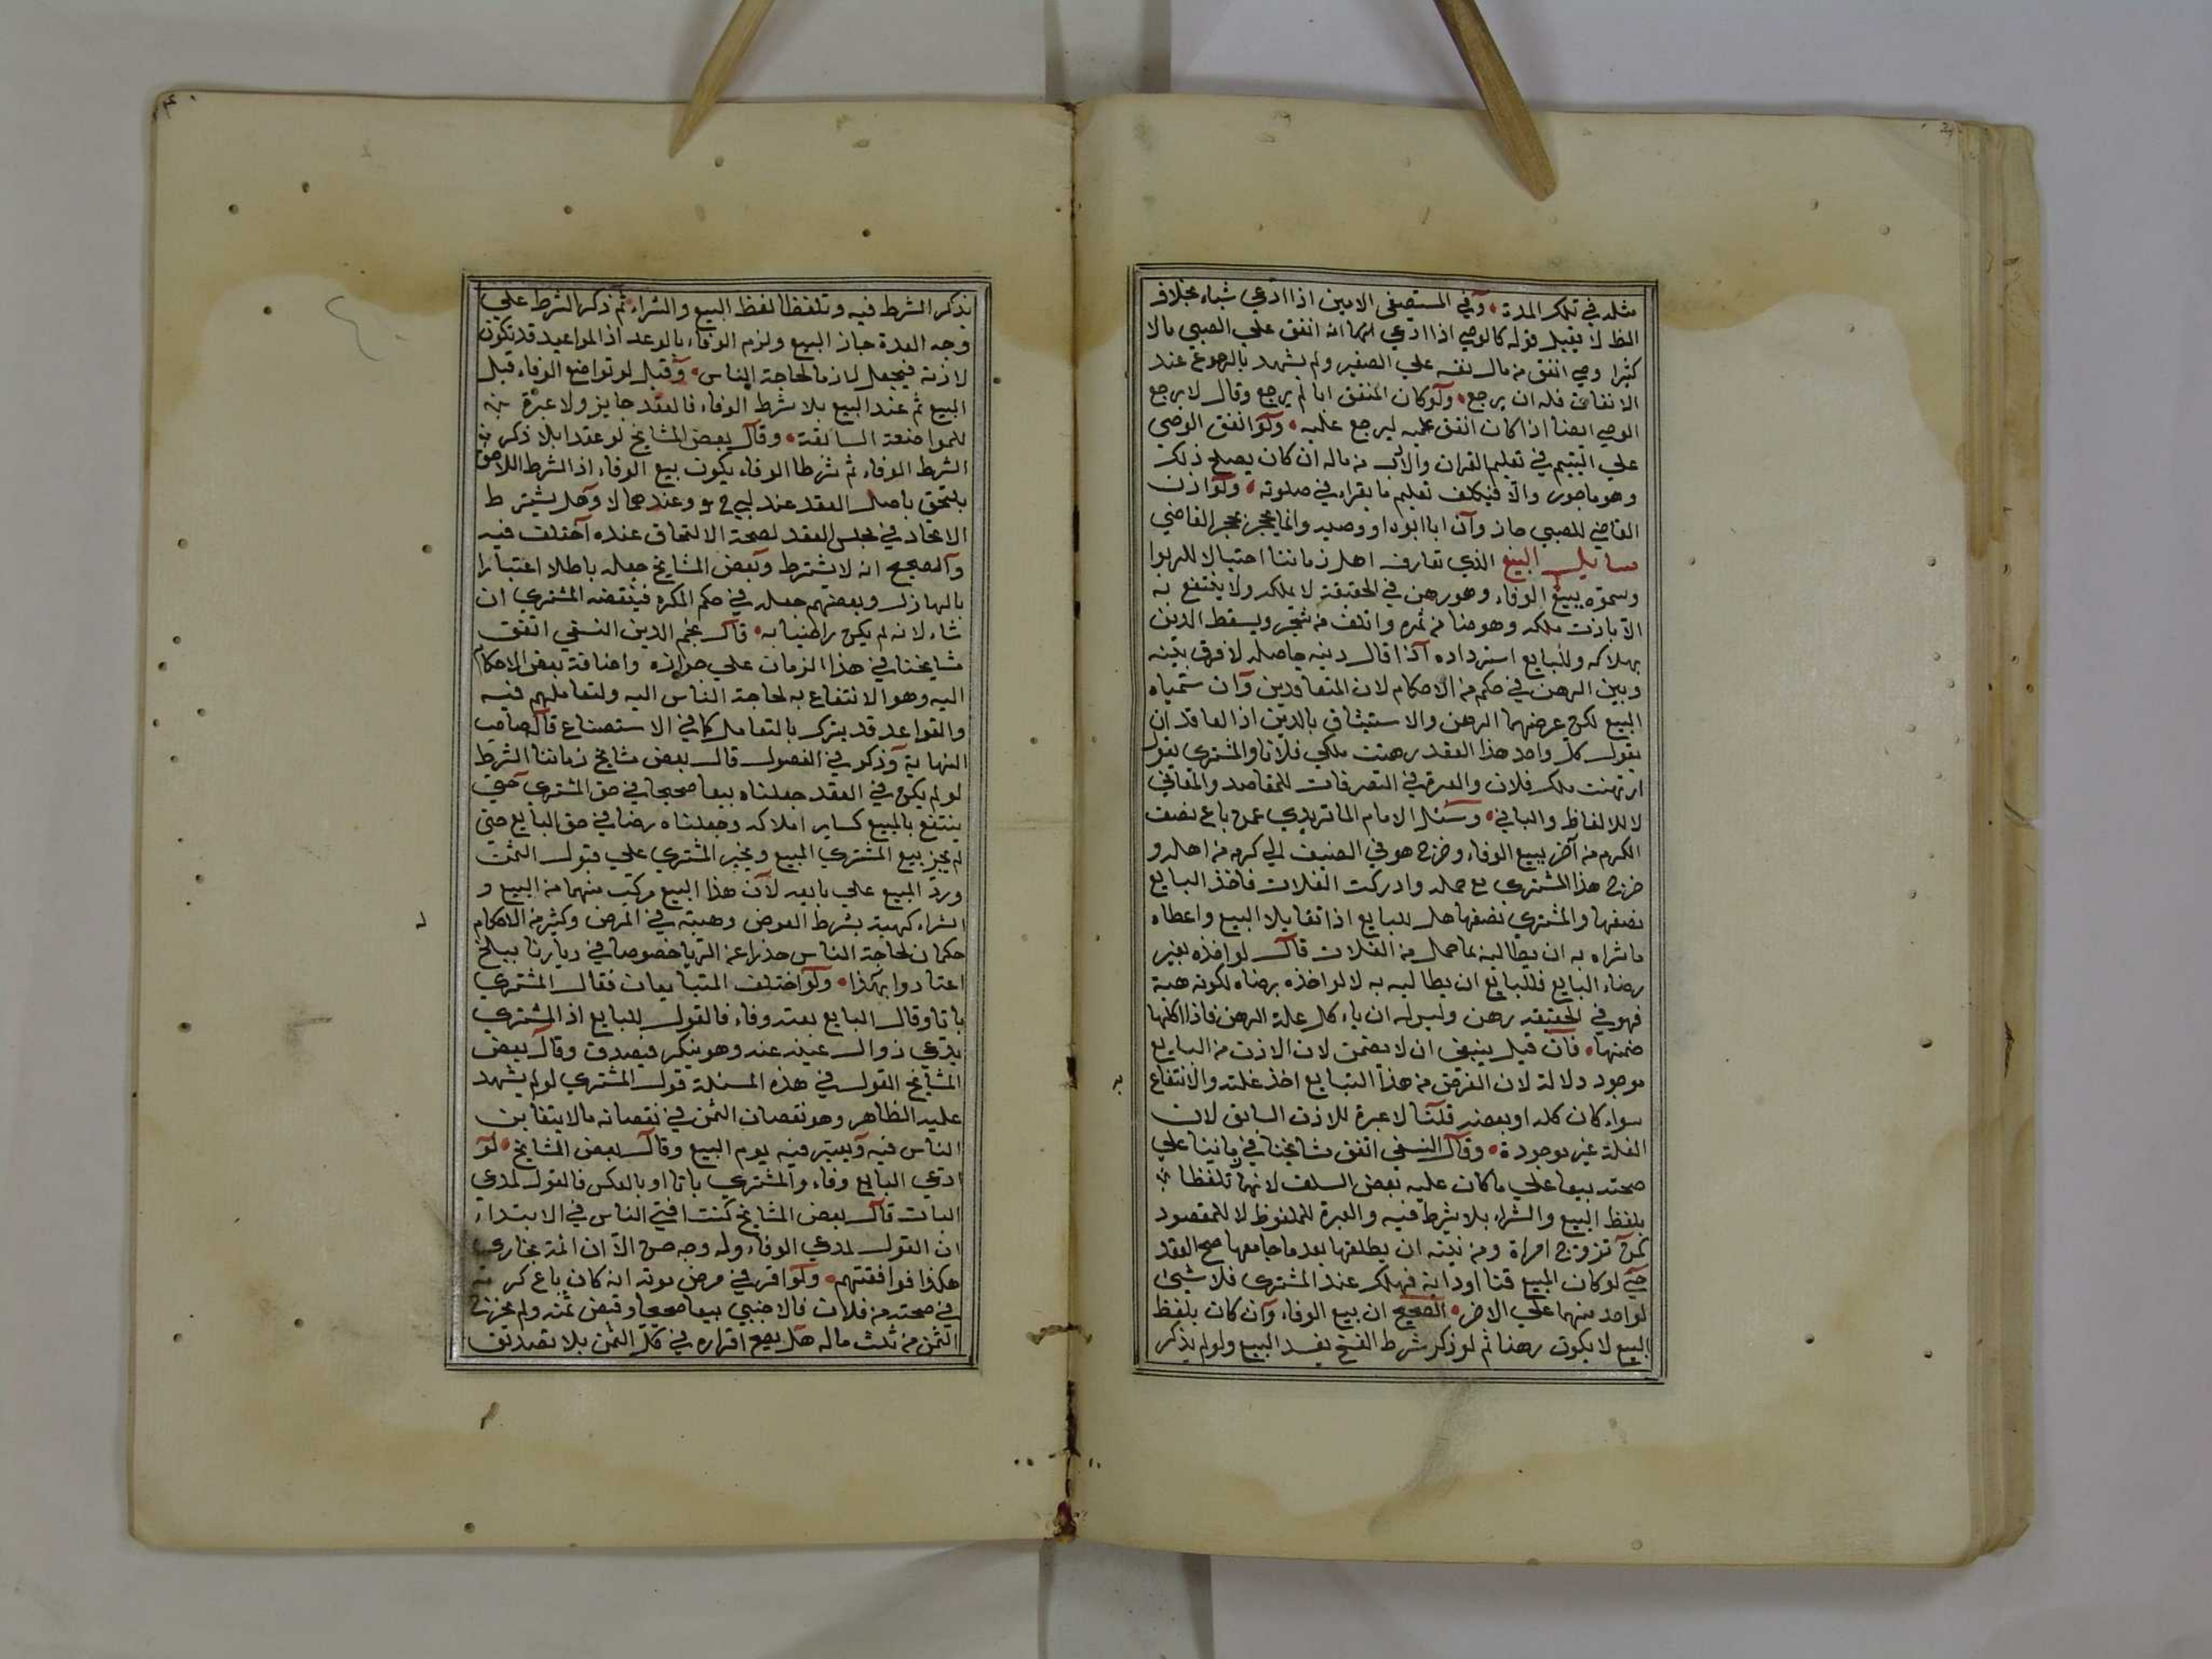 مثله في تلك المدة وفي المستصفى الامين اذا ادعي شياء بخلاف
الظ لا يقبل قوله كالوصي اذا ادعي انه انفق علي الصبي مالا
كثيرا وصي انفق من مال نفسه علي الصغير ولم يشهد بالرجوع عند
الانفاق فله ان يرجع ولوكان المنفق ابا لم يرجع وقال لا يرجع
الوصي ايضا اذا كان انفق عليه ليرجع عليه ولو انفق الوصي
علي اليتيم في تعليم القران والادب من ماله ان كان يصلح ذلك
وهو ماجور والا فيكلف تعليم ما يقراء في صلوته ولو اذن
القاضي للصبي جاز وان ابا ابوه او وصيه وانما يحجر بحجر القاضي
مسايل البيع الذي تعارف اهل زماننا احتيالا للربوا
وسموه ببيع الوفاء وهو رهن في الحقيقة لا يملكه ولا ينتفع به
الا باذن ملكه وهو ضامن ثمره واتلف من شجر ويسقط الدين
بهلاكه وللبايع استرداده اذا قال دينه حاصله لا فرق بينه
وبين الرهن في حكم من الاحكام لان المتعاقدين وان سمياه
البيع لكن غرضهما الرهن والاستيثاق بالدين اذ العاقد ان
يقول كل واحد هذا العقد رهنت ملكي فلانا والمشتري يقول
ارتهنت ملك فلان والعبرة في التصرفات للمقاصد والمعاني
لا للالفاظ والمباني وسئل الامام الماتريدي عمن باع نصف
الكرم من آخر ببيع الوفاء وخرج هو في الصيف الي كرمه من اهله و
خرج هذا المشتري مع حمله وادركت الغلات فاخذ البايع
نصفها والمشتري نصفها هل للبايع اذا تقايلا البيع واعطاه
ما شراه به ان يطالبه بما حمل من الغلات قال لو اخذه بغير
رضاء البايع فللبايع ان يطالبه به لا لو اخذه برضاه لكونه هبة
فهو في الحقيقه رهن وليس له ان ياء كل غلة الرهن فاذا اكلها
ضمنها فان قيل ينبغي ان لا يضمن لان الاذن من البايع
موجود دلالة لان الغرض من هذا التبايع اخذ غلته والانتفاع
سواء كان كله او بعضه قلنا لا عبرة للاذن السابق لان
الغلة غير موجودة وقال النسفي اتفق مشايخنا في زماننا علي
صحته بيعا علي ما كان عليه بعض السلف لانهما تلفظا
بلفظ البيع والشراء بلا شرط فيه والعبرة للملفوظ لا للمقصود
كمن تزوج امراة ومن نيته ان يطلقها بعد ما جامعها صح العقد
حتي لو كان المبيع قنا او دابة فهلك عند المشتري فلا شيئ
لواحد منهما علي الاخر الصحيح ان بيع الوفاء وان كان بلفظ
البيع لا يكون رهنا ثم لو ذكر شرط الفسخ يفسد البيع ولو لم يذكر
يذكر الشرط فيه وتلفظا لفظ البيع والشراء ثم ذكر الشرط علي
وجه العدة جاز البيع ولزم الوفاء بالوعد اذ المواعيد قد تكون
لازمة فيجعل لازما لحاجة الناس وقيل لو تواضع الوفاء قبل
البيع ثم عند البيع بلا شرط الوفاء فالعقد جايز ولا عبرة
للمواضعة السابقة وقال بعض المشايخ لو عقدا بلا ذكر
الشرط الوفاء ثم شرطا الوفاء يكون بيع الوفاء اذ الشرط اللاحق
يلتحق باصل العقد عند ابي ح وعندهما لا وهل يشترط
الاتحاد في مجلس العقد لصحة الالتحاق عنده اختلف فيه
والصحيح انه لا يشترط وبعض المشايخ جعله باطلا اعتبارا
بالهازل وبعضهم جعله في حكم المكره فينقضه المشتري ان
شاء لانه لم يكن راضيا به قال نجم الدين النسفي اتفق
مشايخنا في هذا الزمان علي جوازه واضافة بعض الاحكام
اليه وهو الانتفاع به لحاجة الناس اليه ولتعاملهم فيه
والقواعد قد يترك بالتعامل كما في الاستصناع قال صاحب
النهاية وذكر في الفصول قال بعض مشايخ زماننا الشرط
لو لم يكن في العقد جعلناه بيعا صحيحا في حق المشتري حتي
ينتفع بالمبيع كساير املاكه وجعلناه رهنا في حق البايع حتي
لم يجز بيع المشتري المبيع ويجبر المشتري علي قبول الثمن
ورد المبيع علي بايعه لان هذا البيع مركب منهما من البيع و
الشراء كهبة بشرط العوض وهبته في المرض وكثير من الاحكام
حكمان لحاجة الناس حذرا عن الربا خصوصا في ديارنا ببلخ
اعتادوا بهكذا ولو اختلف المتبايعان فقال المشتري
باتا وقال البايع بعته وفاء فالقول للبايع اذ المشتري
يدعي زوال عينه عنه وهو ينكر فيصدق وقال بعض
المشايخ القول في هذه المسئلة قول المشتري لو لم يشهد
عليه الظاهر وهو نقصان الثمن في نقصانه مالا يتغابن
الناس فيه ويعتبر فيه يوم البيع وقال بعض المشايخ لو
ادعي البايع وفاء والمشتري باتا او بالعكس فالقول لمدعي
البات قال بعض المشايخ كنت افتي الناس في الابتداء
ان القول لمدعي الوفاء وله وجه حسن الا ان ائمة بخاري
هكذا فوافقتهم ولو اقر في مرض موته انه كان باع كرمه
في صحته من فلان فالاجنبي بيعا صحيحا وقبض ثمنه ولم يخرج
الثمن من ثلث ماله هل يصح اقراره في كل الثمن بلا تصديق